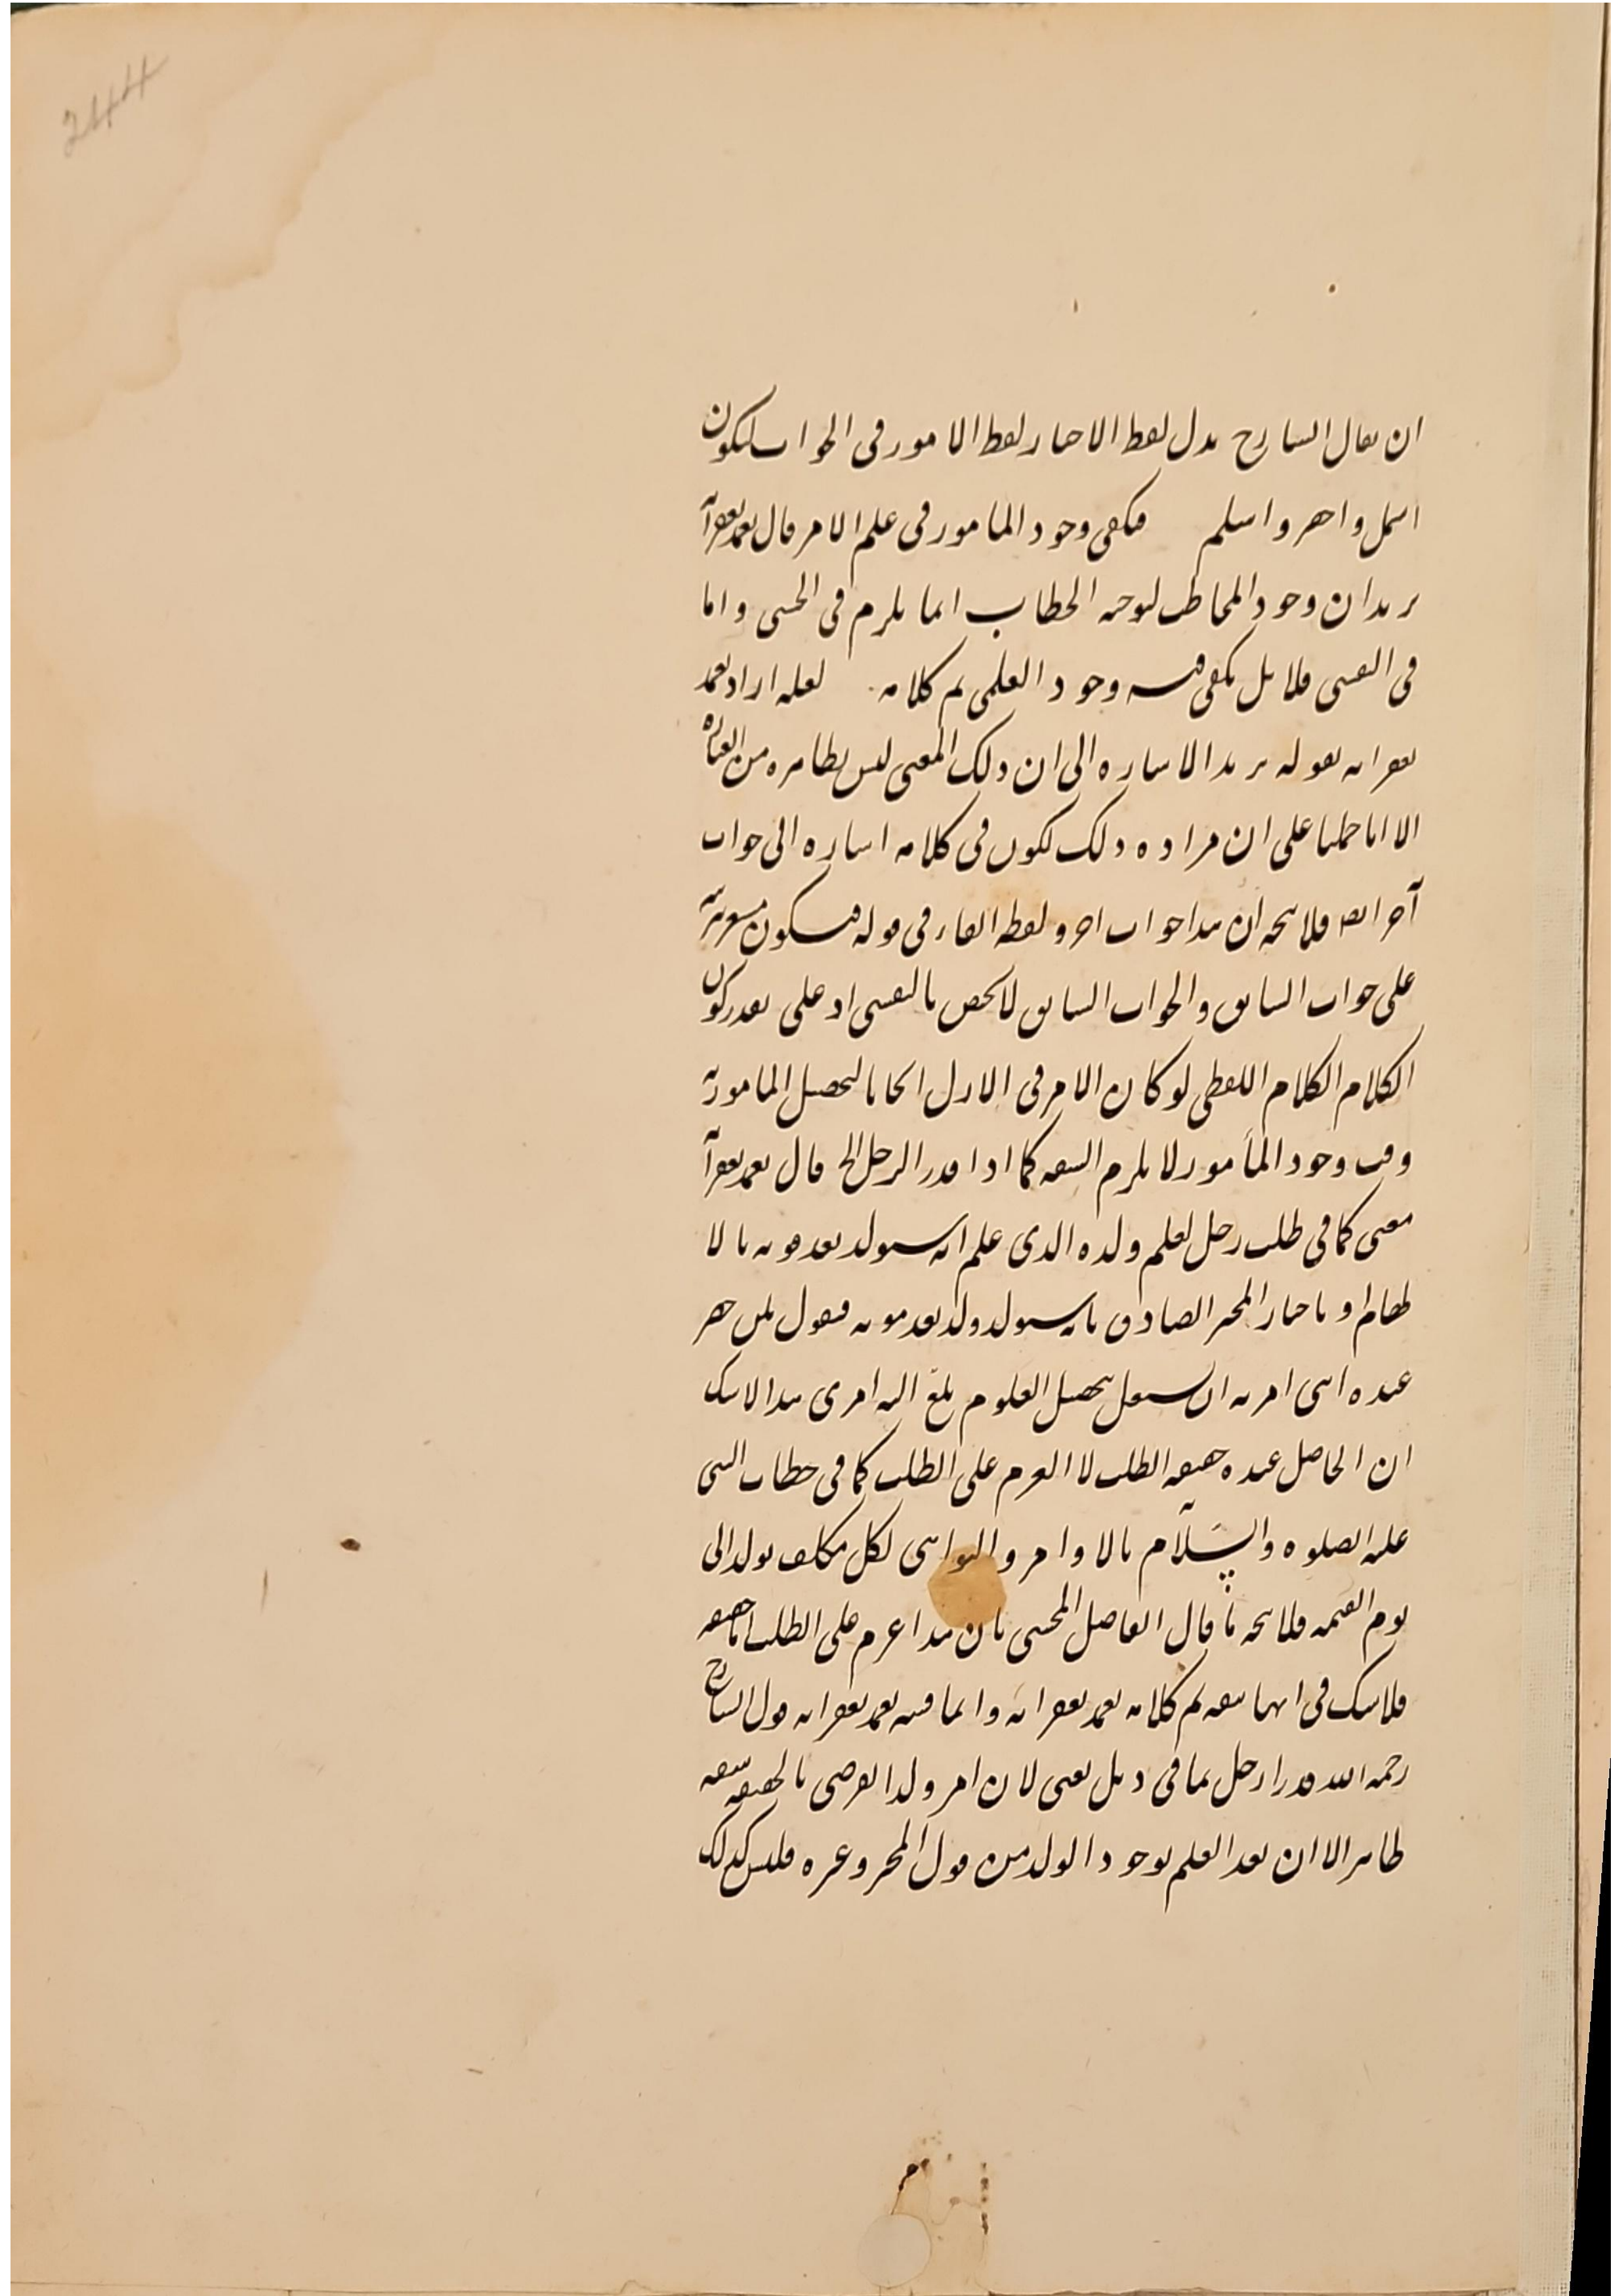 244
ان يقال الشارح بدل لفظ الاخبار لفظ الامور فى الجواب ليكون
اشمل واخصر واسلم فيكفى وجود المامور فى علم الامر قال تغمد بغفرانه
يريد ان وجود المخاطب لتوجه الخطاب انما يلزم فى الحسى واما
فى النفسى فلا بل يكفى فيه وجود العلمى تم كلامه لعله اراد تغمد
بغفرانه بقوله يريد الاشاره الى ان ذلك المعنى ليس بظاهره من العباره
الا انا حملنا على ان مراده ذلك ليكون فى كلامه اشاره الى جواب
آخر انتهى فلا يتجه ان هذا جواب اخر ولفظه الفاء فى قوله فيكون
على جواب السابق والجواب السابق لا يختص بالنفسى اذ على تقدير كون
الكلام الكلام اللفظى لو كان الامر فى الازل ايجابا لتحصيل المامور به
وقت وجود المأمور لا يلزم السفه كما اذا قدر الرجل الخ قال تغمد بغفرانه
معنى كما فى طلب رجل تعلم ولده الذى علم انه سيولد بعد موته بالا
لهام او باخبار المخبر الصادق بانه سيولد ولد بعد موته فيقول لمن حضر
عنده انى امرته ان يشتغل بتحصيل العلوم بلغ اليه امرى هذا لا شك
ان الحاصل عنده حقيقه الطلب لا العزم على الطلب كما فى خطاب النبى
عليه الصلوه والسلام بالاوامر والنواهى لكل مكلف يولد الى
يوم القيمه فلا يتجه ما قال الفاضل المحشى بان هذا عزم على الطلب اما حقيقه
فلا شك فى انها سفه تم كلامه تغمد بغفرانه وانما قيد تغمد بغفرانه قول الشارح
رحمه الله قدر ارجل بما فى ذيل يعنى لان امر ولد الفرضى بالحقيقه سفه
ظاهر الا ان بعد العلم بوجود الولد من قول المخبر وغيره فليس كذلك